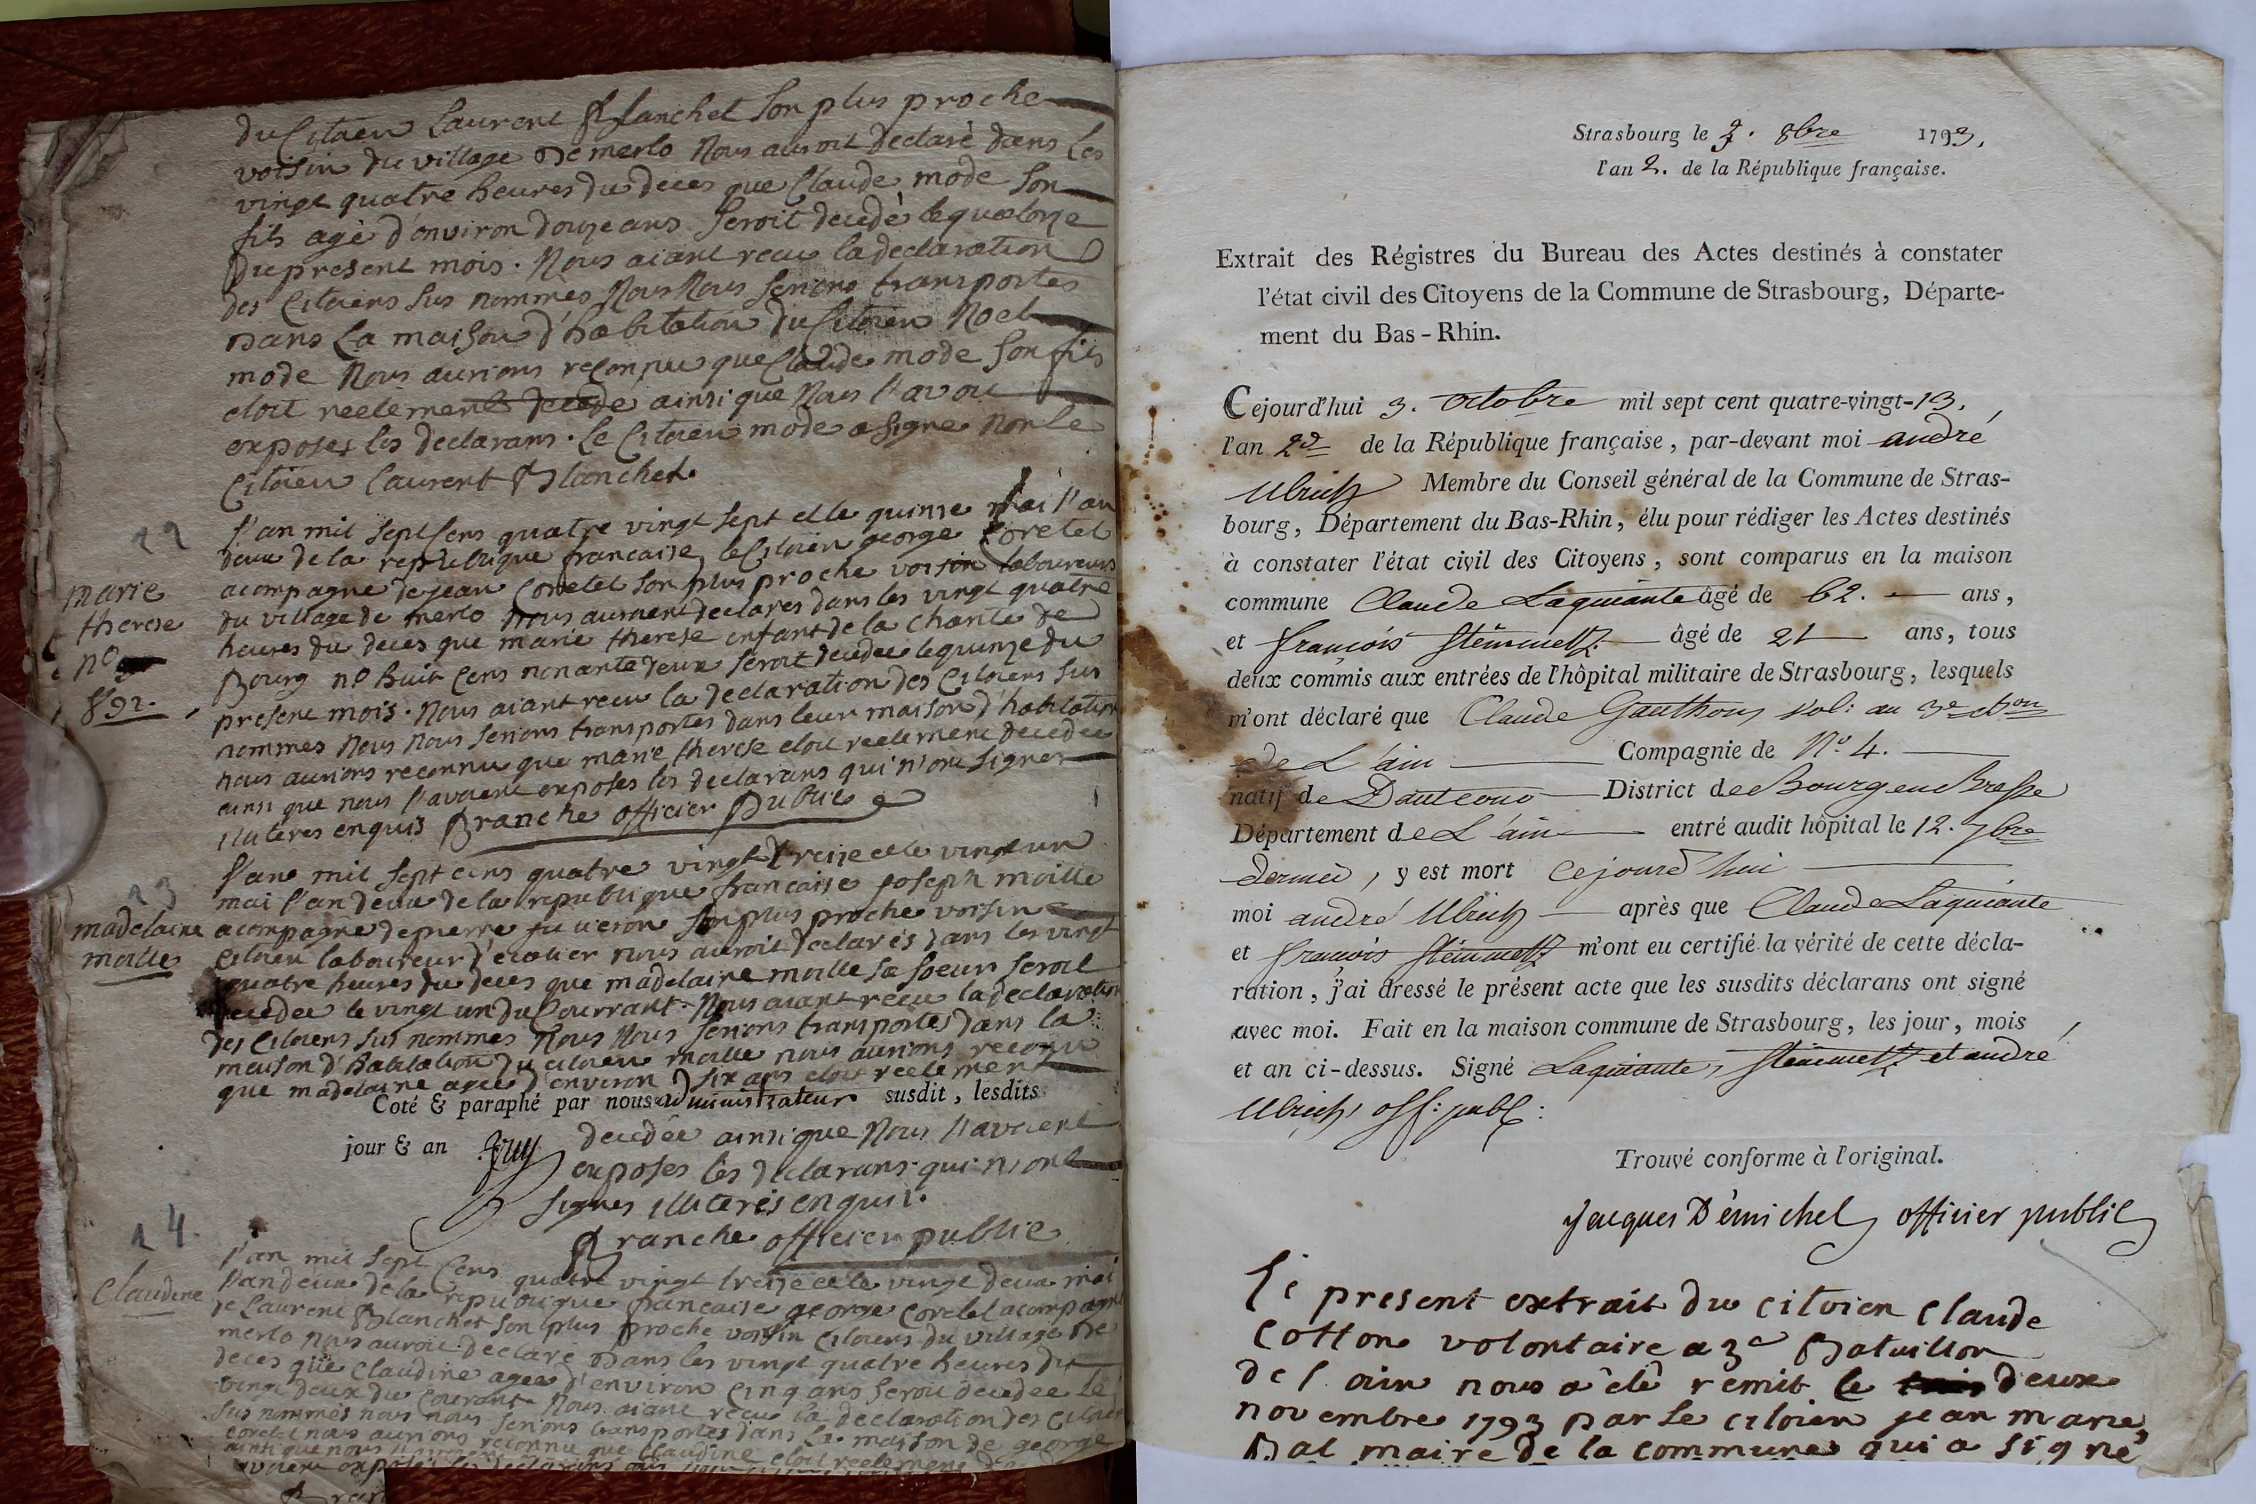 du Citoien Laurent Blanchet son plus proche
voisin du village de merlo Nous auroit declaré dans les
vingt quatre heures du deces que Claude mode son
fils agé d'environ douze ans seroit decedé le quatorze
du present mois. Nous aiant recu la declaration
des Citoiens sus nommés Nous Nous serions transportes
dans la maison d'habitation du Citoien Noel
mode Nous aurions reconnu que Claude mode son fils
etoit reelement decede ainsi que Nous l'avoi
exposes les declarans. le Citoien mode a signe non le
Citoien Laurent Blanchet.
12
l'an mil sept sens quatre vingt sept et le quinze mai l'an
deux de la republique francaise le Citoien george Coretet
acompagne de jean Coretet son plus proche voisin laboureurs
du village de merlo nous auroient declares dans les vingt quatre
heures du deces que marie therese enfant de la charite de
Bourg no huit cens nonante deux seroit decedee le quinze du
present mois. Nous aiant recu la declaration des Citoiens sus
nommes Nous Nous serions transportes dans leur maison d'habitation
nous aurions reconnu que marie therese etoit reelement decedee
ainsi que nous l'avoient exposes les declarans qui n'ont signer
illiteres enquis Branche officier Public
marie
therese
no
892.
13
l'an mil sept cens quatre vingt treize et le vingt un
mai l'an deux de la republique francaise joseph moille
acompagne de pierre son plus proche voisin
Citoien laboureur nous auroit declarés dans les vingt
quatre heures du deces que madelaine moille sa soeur seroit
decedee le vingt un du Courrant. Nous aiant recu la declaration
des Citoiens sus nommes Nous Nous serions transportes dans la
maison d'habitation du citoien moille nous aurions reconu
que madelaine agee d'environ six ans etoit reelement
madelaine
moille
Coté & paraphé par nous administrateur susdit, lesdits
jour & an
decedée ainsi que Nous l'avoient
exposes les declarans qui n'ont
signes illiterés enquis.
Branche officier public
14
l'an mil sept Cens quatre vingt treize et le vingt deux mai
l'an deux de la republique francaise george Coretet acompagne
de Laurent Blanchet son plus proche voisin Citoiens du village de
merlo nous auroit declaré dans les vingt quatre heures du
deces que Claudine agee d'environ Cinq ans seroit decedee le
vingt deux du Courant. Nous aiant recu la declaration des Citoiens
sus nommes nous nous serions transportes dans la maison de george
coretet nous aurions reconnu que Claudine etoit reelement
ainsi que nous
Claudine
Strasbourg le 3. 8bre 1793,
l'an 2. de la République française.
Extrait des Régistres du Bureau des Actes destinés à constater
l'état civil des Citoyens de la Commune de Strasbourg, Départe-
ment du Bas-Rhin.
Cejourd'hui 3. octobre mil sept cent quatre-vingt-13,
l'an 2d de la République française, par-devant moi andré
Ulrich Membre du Conseil général de la Commune de Stras-
bourg, Département du Bas-Rhin, élu pour rédiger les Actes destinés
à constater l'état civil des Citoyens, sont comparus en la maison
commune Claude Laquiante âgé de 62. ans,
et françois Stéinmetz âgé de 21 ans, tous
deux commis aux entrées de l'hôpital militaire de Strasbourg, lesquels
m'ont déclaré que Claude Gauthon vol: au 3e bton
de L'ain Compagnie de No. 4.
natif de District de Bourg en Bresse
Département de L'ain entré audit hôpital le 12. 7bre
dernier, y est mort cejourd'hui
moi andré Ulrich après que Claude Laquiante
et françois Stéinmetz m'ont eu certifié la vérité de cette décla-
ration, j'ai dressé le présent acte que les susdits déclarans ont signé
avec moi. Fait en la maison commune de Strasbourg, les jour, mois
et an ci-dessus. Signé Laquiante, Stéinmetz et andré
Ulrich, off: publ:
Trouvé conforme à l'original.
Jacques Démichel officier public
Le present extrait du citoien Claude
Cotton volontaire a 3e Bataillon
de l'ain nous a été remit le deux
novembre 1793 par le citoien jean marie
Bal maire de la commune qui a signé